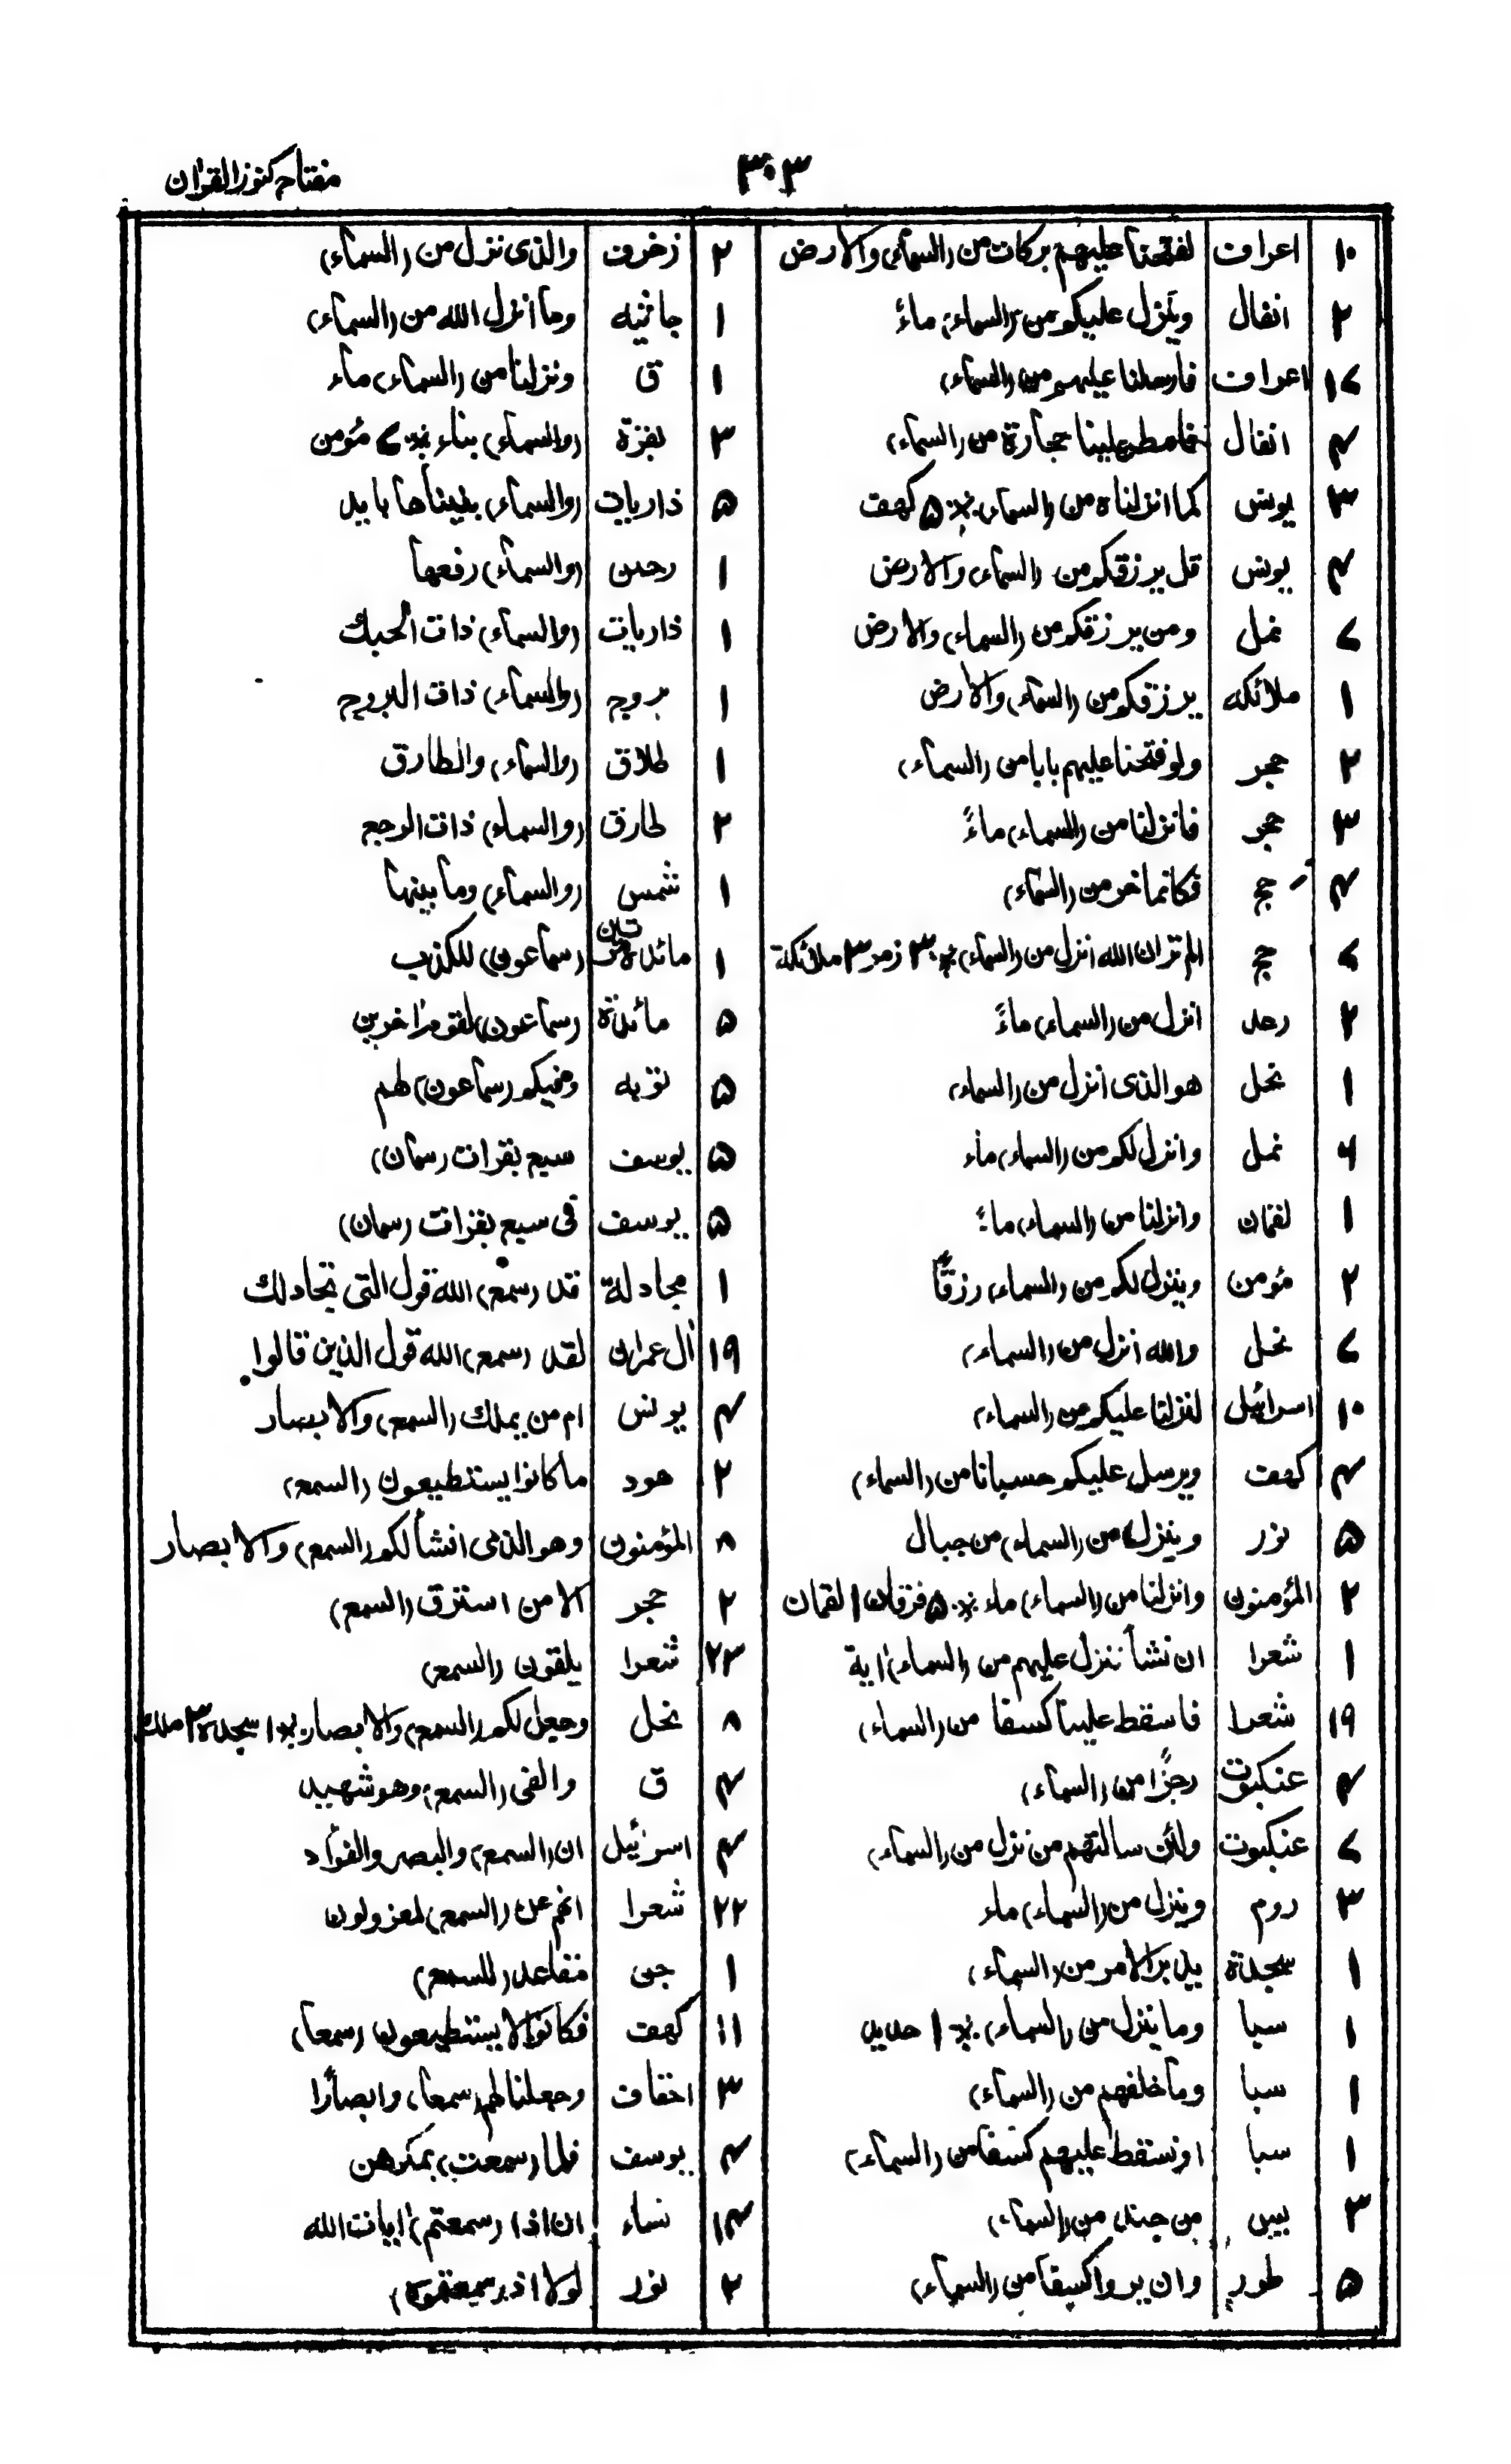 مفتاح کنوز القران
۳۰۳
۱۰ اعراف لفتحنا علیهم برکات من (السماء) والارض
۲ انفال وینزل علیکم من (السماء) ماءً
اعراف فارسلنا علیهم من (السماء)
۴ انفال فامطر علینا حجارة من (السماء)
۳ یونس کما انزلناه من (السماء) ۵ کهف
۴ یونس قل یرزقکم من (السماء) والارض
۷ نمل ومن یرزقکم من (السماء) والارض
۱ ملائکه یرزقکم من (السماء) والارض
۲ حجر ولو فتحنا علیهم بابا من (السماء)
۳ حجر فانزلنا من (السماء) ماءً
۴ حج فکانما خر من (السماء)
۷ حج الم تر ان الله انزل من (السماء) ۳ زمر ۳ ملائکة
۲ رعد انزل من (السماء) ماءً
۱ نحل هو الذی انزل من (السماء)
۶ نمل وانزل لکم من (السماء) ماء
۱ لقمان وانزلنا من (السماء) ماءً
۲ مؤمن وینزل لکم من (السماء) رزقًا
۷ نحل والله انزل من (السماء)
۱۰ اسرائیل لنزلنا علیکم من (السماء)
۴ کهف ویرسل علیکم حسبانا من (السماء)
۵ نور وینزل من (السماء) من جبال
۲ المؤمنون وانزلنا من (السماء) ماء ۵ فرقان ۱ لقمان
۱ شعرا ان نشأ ننزل علیهم من (السماء) اٰیة
۱۹ شعرا فاسقط علینا کسفا من (السماء)
۴ عنکبوت رجزًا من (السماء)
۷ عنکبوت ولئن سالتهم من نزل من (السماء)
۳ روم وینزل من (السماء) ماء
۱ سجدة یدبر الامر من (السماء)
۱ سبا وما ینزل من (السماء) ۱ حدید
۱ سبا وما خلفهم من (السماء)
۱ سبا او نسقط علیهم کسفا من (السماء)
۳ یٰس من جند من (السماء)
۵ طور وان یروا کسفا من (السماء)
۲ زخرف والذی نزل من (السماء)
۱ جاثیه وما انزل الله من (السماء)
۱ ق ونزلنا من (السماء) ماء
۳ بقرة (والسماء) بناء ۷ مؤمن
۵ ذاریات (والسماء) بنیناها باید
۱ رحمن (والسماء) رفعها
۱ ذاریات (والسماء) ذات الحبك
۱ بروج (والسماء) ذات البروج
۱ طلاق (والسماء) والطارق
۲ طارق (والسماء) ذات الرجع
۱ شمس (والسماء) وما بینها
۱ مائدة (سماعون) للکذب
۵ مائدة (سماعون) لقوم اٰخرین
۵ توبه وفیکم (سماعون) لهم
۵ یوسف سبع بقرات (سمان)
۵ یوسف فی سبع بقرات (سمان)
۱ مجادلة قد (سمع) الله قول التی تجادلك
۱۹ اٰل عمران لقد (سمع) الله قول الذین قالوا
۴ یونس ام من یملك (السمع) والابصار
۲ هود ما کانوا یستطیعون (السمع)
المؤمنون وهو الذی انشأ لکم (السمع) والابصار
۲ حجر الا من استرق (السمع)
۲۳ شعرا یلقون (السمع)
۸ نحل وجعل لکم (السمع) والابصار ۱ سجدة ۳ ملك
۴ ق والقی (السمع) وهو شهید
۴ اسرائیل ان (السمع) والبصر والفؤاد
۲۲ شعرا انهم عن (السمع) لمعزولون
۱ جن مقاعد (للسمع)
۱۱ کهف فکانوا لا یستطیعون (سمعا)
۳ احقاف وجعلنا لهم (سمعا) وابصارًا
۴ یوسف فلما (سمعت) بمکرهن
۱۴ نساء ان اذا (سمعتم) اٰیات الله
۲ نور لولا اذ (سمعتموه)